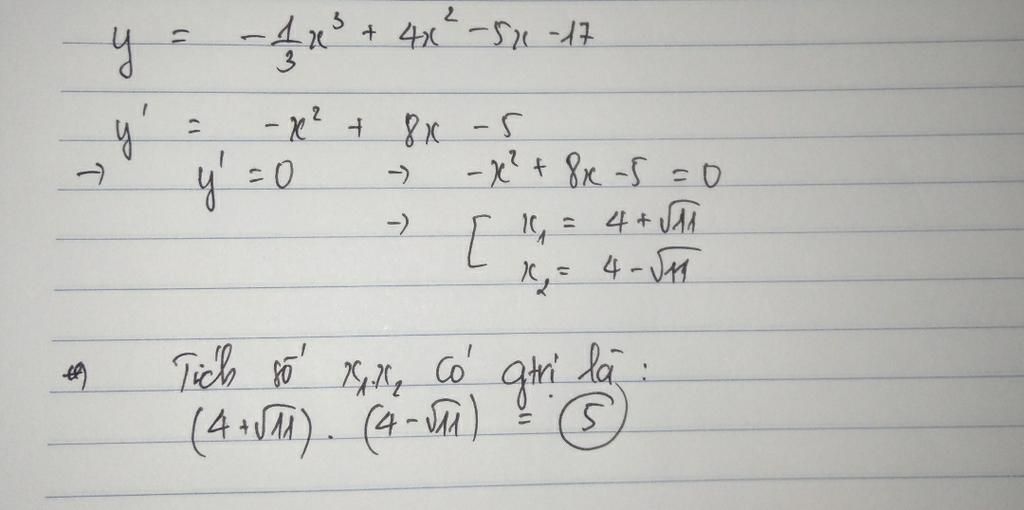 y = -1/3 x³ + 4x² - 5x - 17
y' = -x² + 8x - 5
→ y' = 0 → -x² + 8x - 5 = 0
→ [ x₁ = 4 + √11
x₂ = 4 - √11
Tích số x₁.x₂ có gtrị là :
(4 + √11) . (4 - √11) = 5